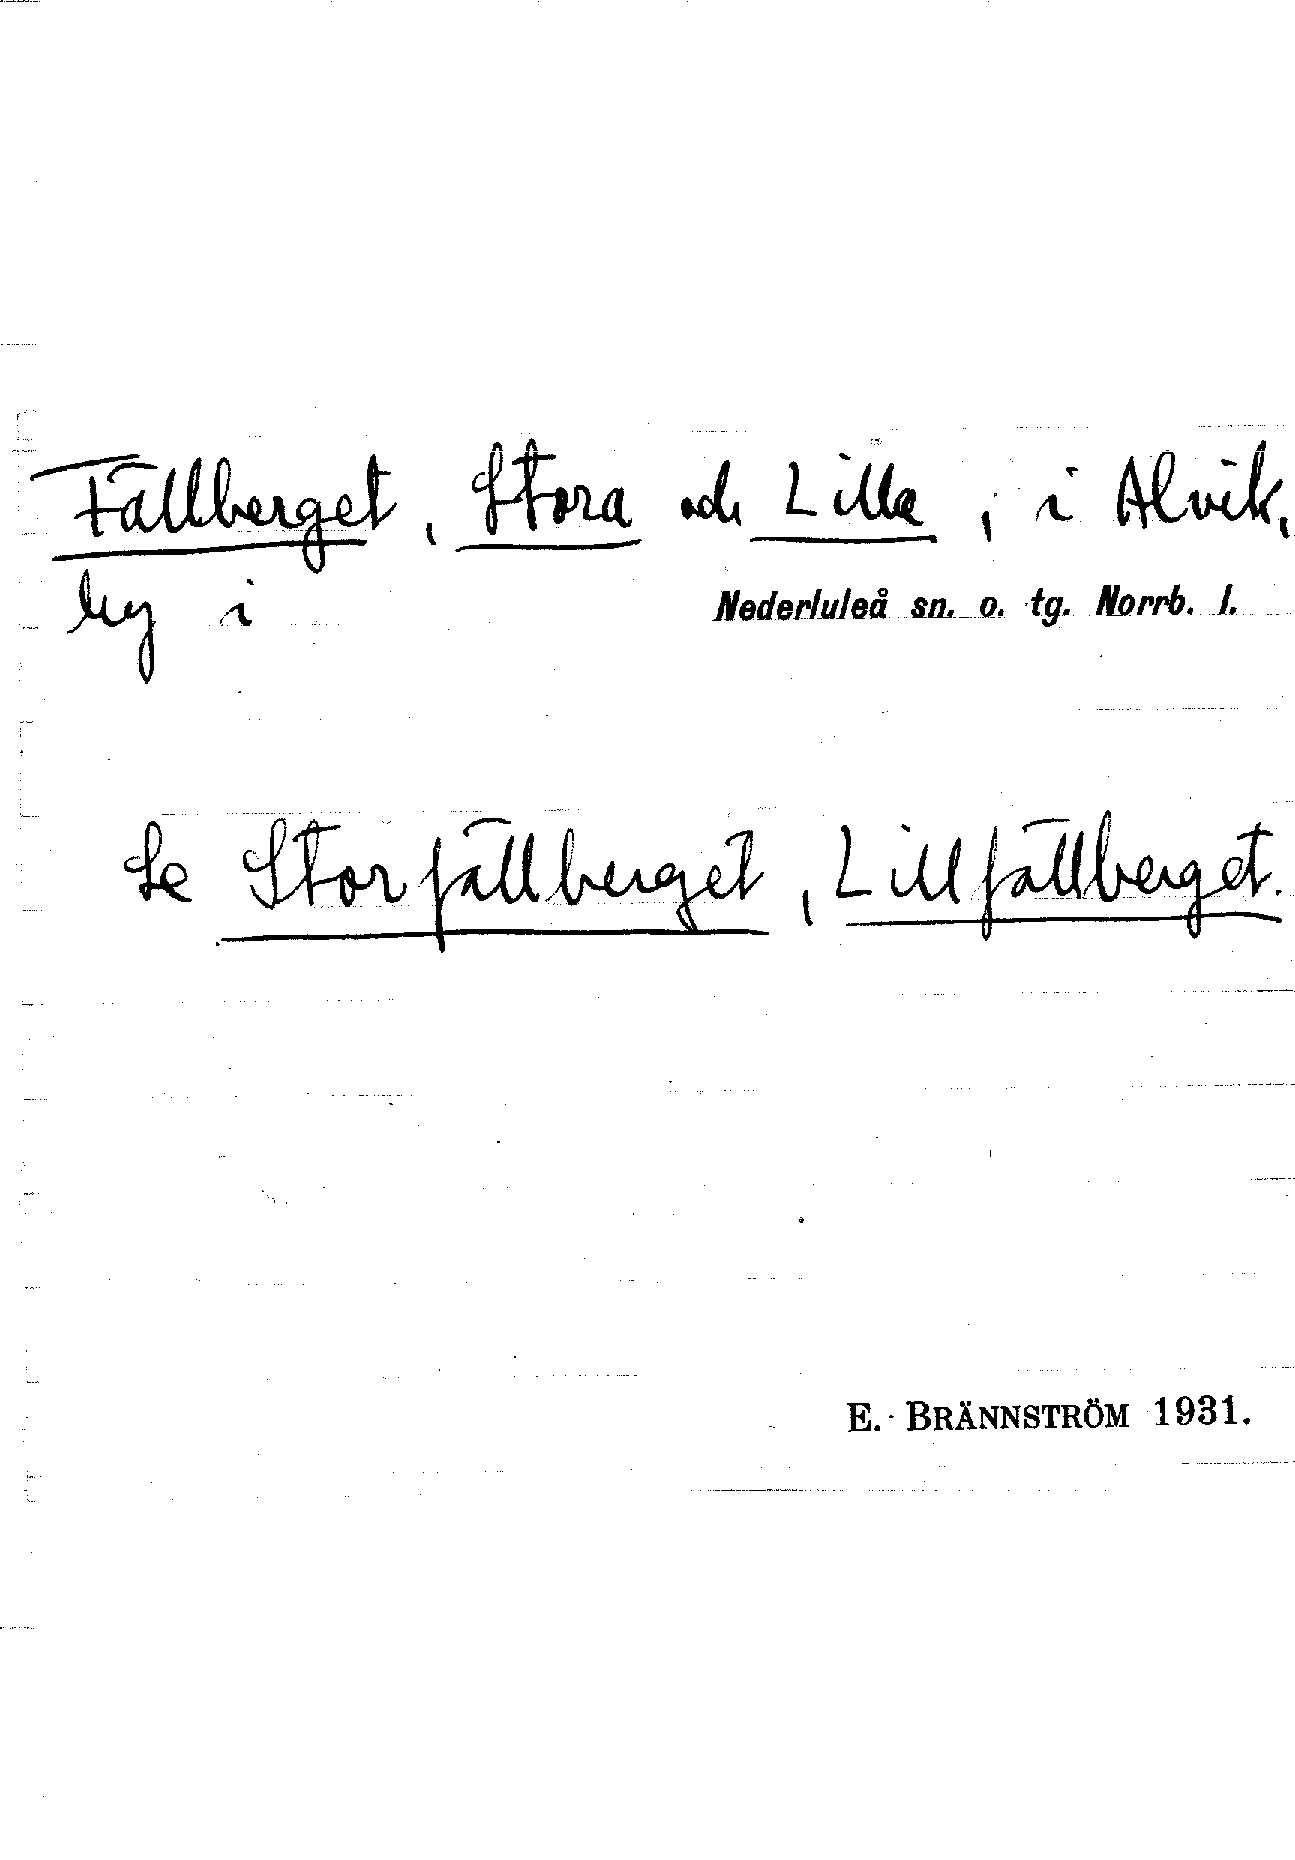 Fällberget, Stora och Lilla, i Alvik,
by i Nederluleå sn. o. tg. Norrb. l.
Se Storfällberget, Lillfällberget.
E. BRÄNNSTRÖM 1931.